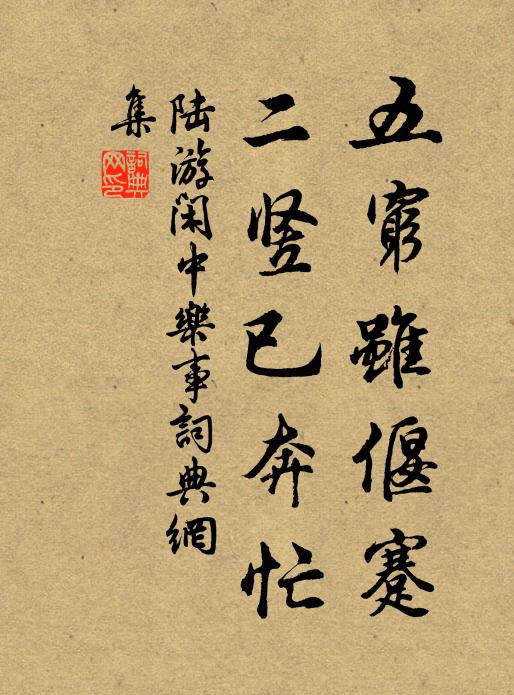 五窮雖偃蹇
二竖已奔忙
陆游閑中樂事詞典網
集
詞典网印